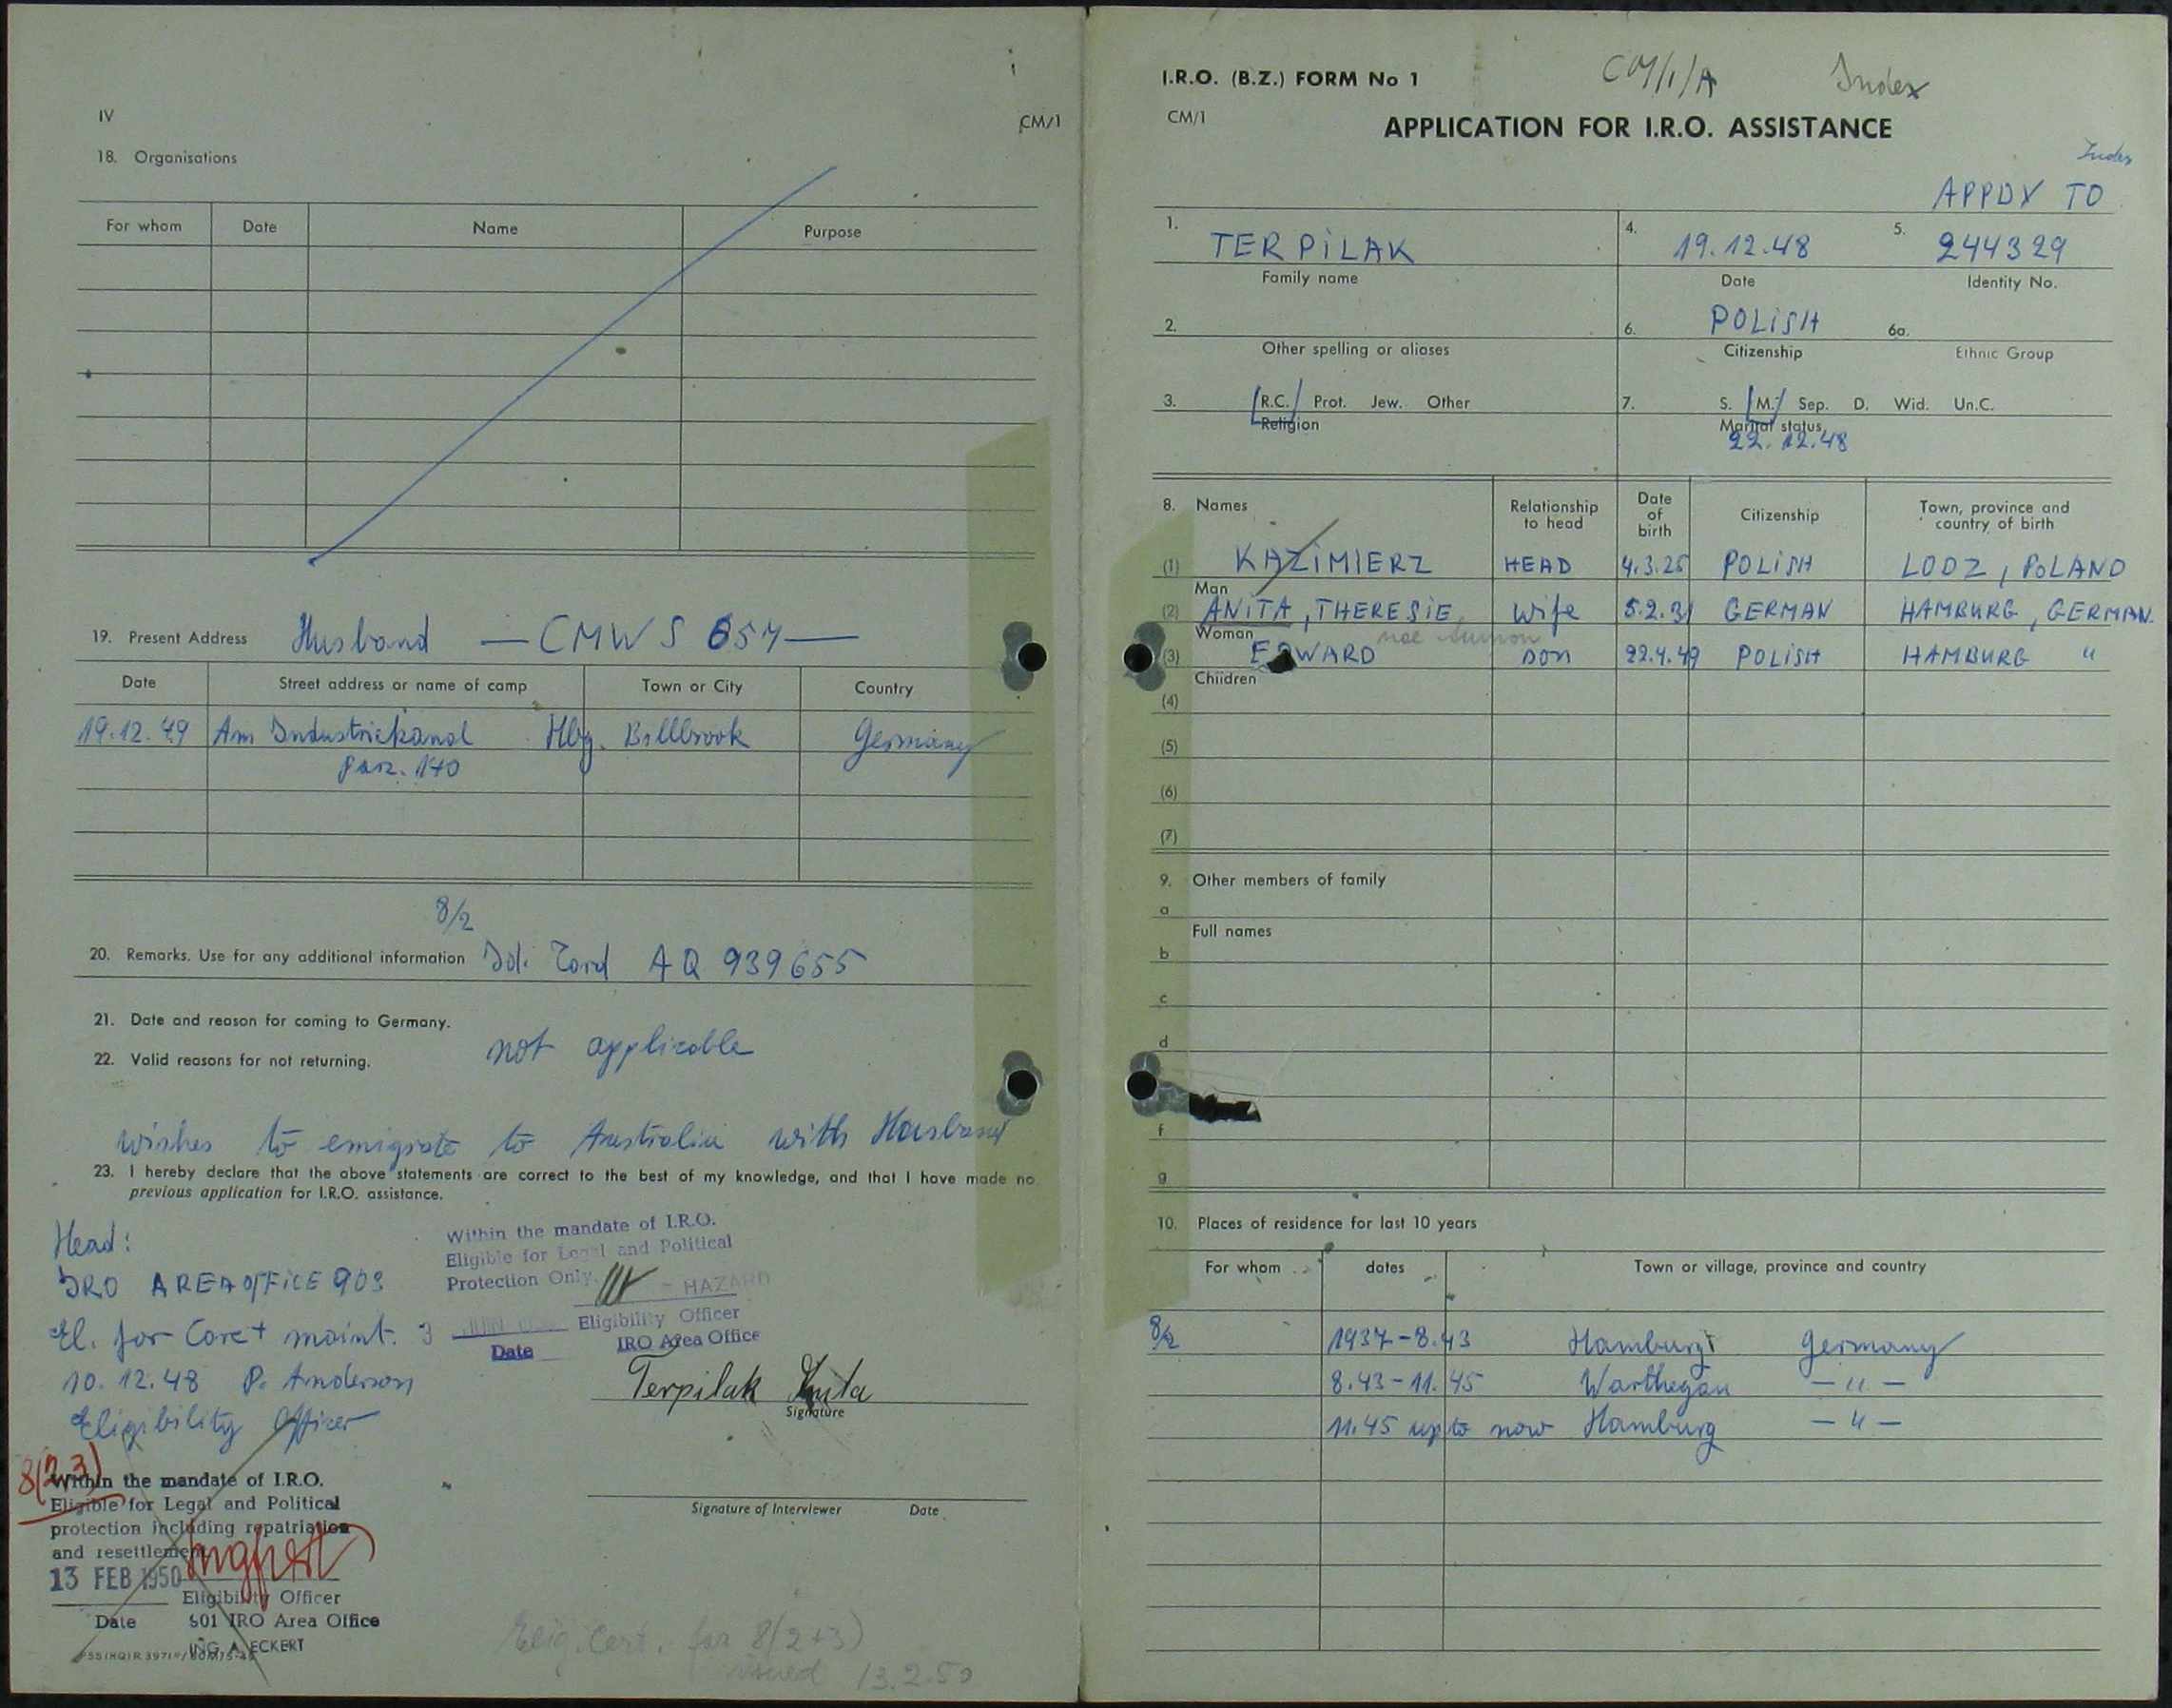 IV
CM/1
18. Organisations
For whom Date Name Purpose
19. Present Address Husband — CMWS 657 —
Date Street address or name of camp Town or City Country
19.12.49 Am Industriekanal Hbg. Billbrook Germany
Parz. 140
8/2
20. Remarks. Use for any additional information Id. Card AQ 939655
21. Date and reason for coming to Germany.
not applicable
22. Valid reasons for not returning.
wishes to emigrate to Australia with Husband
23. I hereby declare that the above statements are correct to the best of my knowledge, and that I have made no
previous application for I.R.O. assistance.
Head:
IRO AREA OFFICE 903
El. for Care + maint.
10.12.48 P. Anderson
Eligibility Officer
Within the mandate of I.R.O.
Eligible for Legal and Political
Protection Only.
HAZARD
Eligibility Officer
Date IRO Area Office
Terpilak Anita
Signature
Signature of Interviewer Date
8(2,3)
Within the mandate of I.R.O.
Eligible for Legal and Political
protection including repatriation
and resettlement
13 FEB 1950
Eligibility Officer
Date 501 IRO Area Office
ING. A. ECKERT
Elig. Cert. for 8(2+3)
issued 13.2.50
I.R.O. (B.Z.) FORM No 1 CM/1/A Index
CM/1 APPLICATION FOR I.R.O. ASSISTANCE
Index
APPDX TO
1. TERPILAK 4. 19.12.48 5. 244329
Family name Date Identity No.
2. 6. POLISH 6a.
Other spelling or aliases Citizenship Ethnic Group
3. R.C. Prot. Jew. Other 7. S. M. Sep. D. Wid. Un.C.
Religion Marital status
22.12.48
8. Names Relationship to head Date of birth Citizenship Town, province and country of birth
(1) KAZIMIERZ HEAD 4.3.25 POLISH LODZ, POLAND
Man
(2) ANITA, THERESIE, wife 5.2.31 GERMAN HAMBURG, GERMAN.
Woman
(3) EDWARD son 22.4.49 POLISH HAMBURG "
Children
(4)
(5)
(6)
(7)
9. Other members of family
a
Full names
b
c
d
f
g
10. Places of residence for last 10 years
For whom dates Town or village, province and country
8/2 1937-8.43 Hamburg Germany
8.43-11.45 Warthegau — " —
11.45 up to now Hamburg — " —